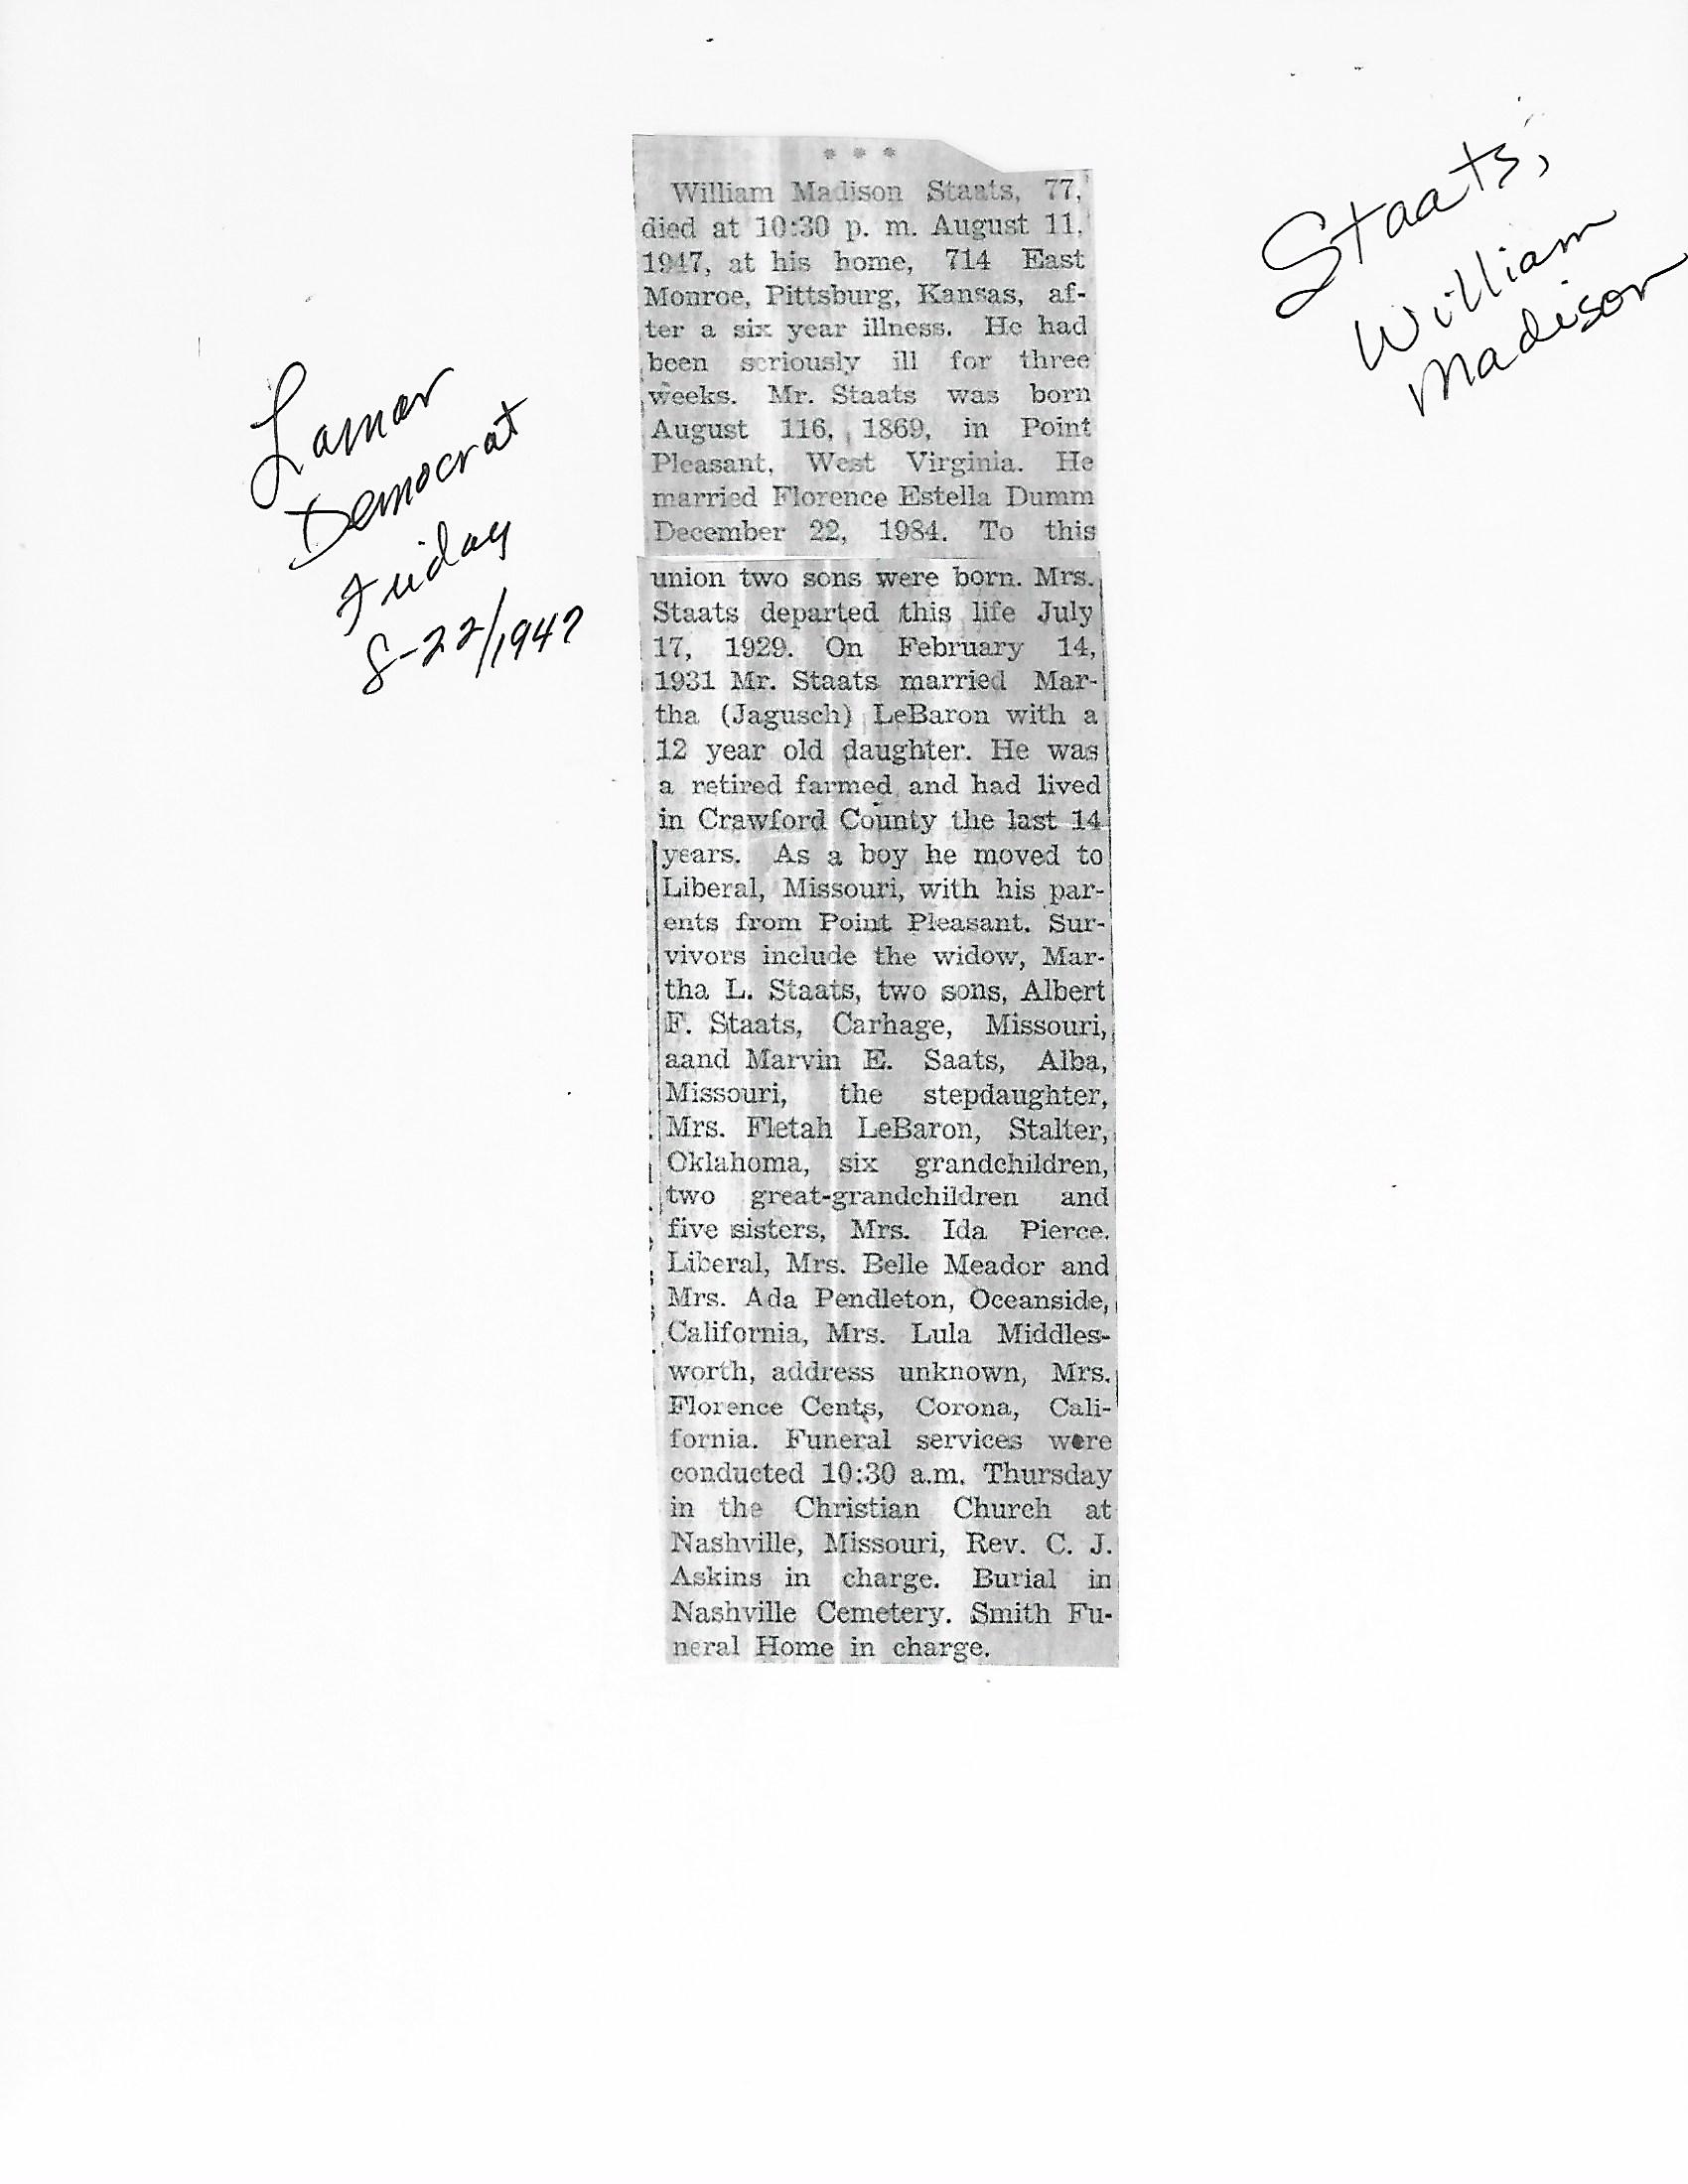 Staats,
William
Madison
Lamar
Democrat
Friday
8-22/1947
* * *
William Madison Staats, 77,
died at 10:30 p. m. August 11,
1947, at his home, 714 East
Monroe, Pittsburg, Kansas, af-
ter a six year illness. He had
been seriously ill for three
weeks. Mr. Staats was born
August 116, 1869, in Point
Pleasant, West Virginia. He
married Florence Estella Dumm
December 22, 1984. To this
union two sons were born. Mrs.
Staats departed this life July
17, 1929. On February 14,
1931 Mr. Staats married Mar-
tha (Jagusch) LeBaron with a
12 year old daughter. He was
a retired farmed and had lived
in Crawford County the last 14
years. As a boy he moved to
Liberal, Missouri, with his par-
ents from Point Pleasant. Sur-
vivors include the widow, Mar-
tha L. Staats, two sons, Albert
F. Staats, Carhage, Missouri,
aand Marvin E. Saats, Alba,
Missouri, the stepdaughter,
Mrs. Fletah LeBaron, Stalter,
Oklahoma, six grandchildren,
two great-grandchildren and
five sisters, Mrs. Ida Pierce.
Liberal, Mrs. Belle Meador and
Mrs. Ada Pendleton, Oceanside,
California, Mrs. Lula Middles-
worth, address unknown, Mrs.
Florence Cents, Corona, Cali-
fornia. Funeral services were
conducted 10:30 a.m. Thursday
in the Christian Church at
Nashville, Missouri, Rev. C. J.
Askins in charge. Burial in
Nashville Cemetery. Smith Fu-
neral Home in charge.